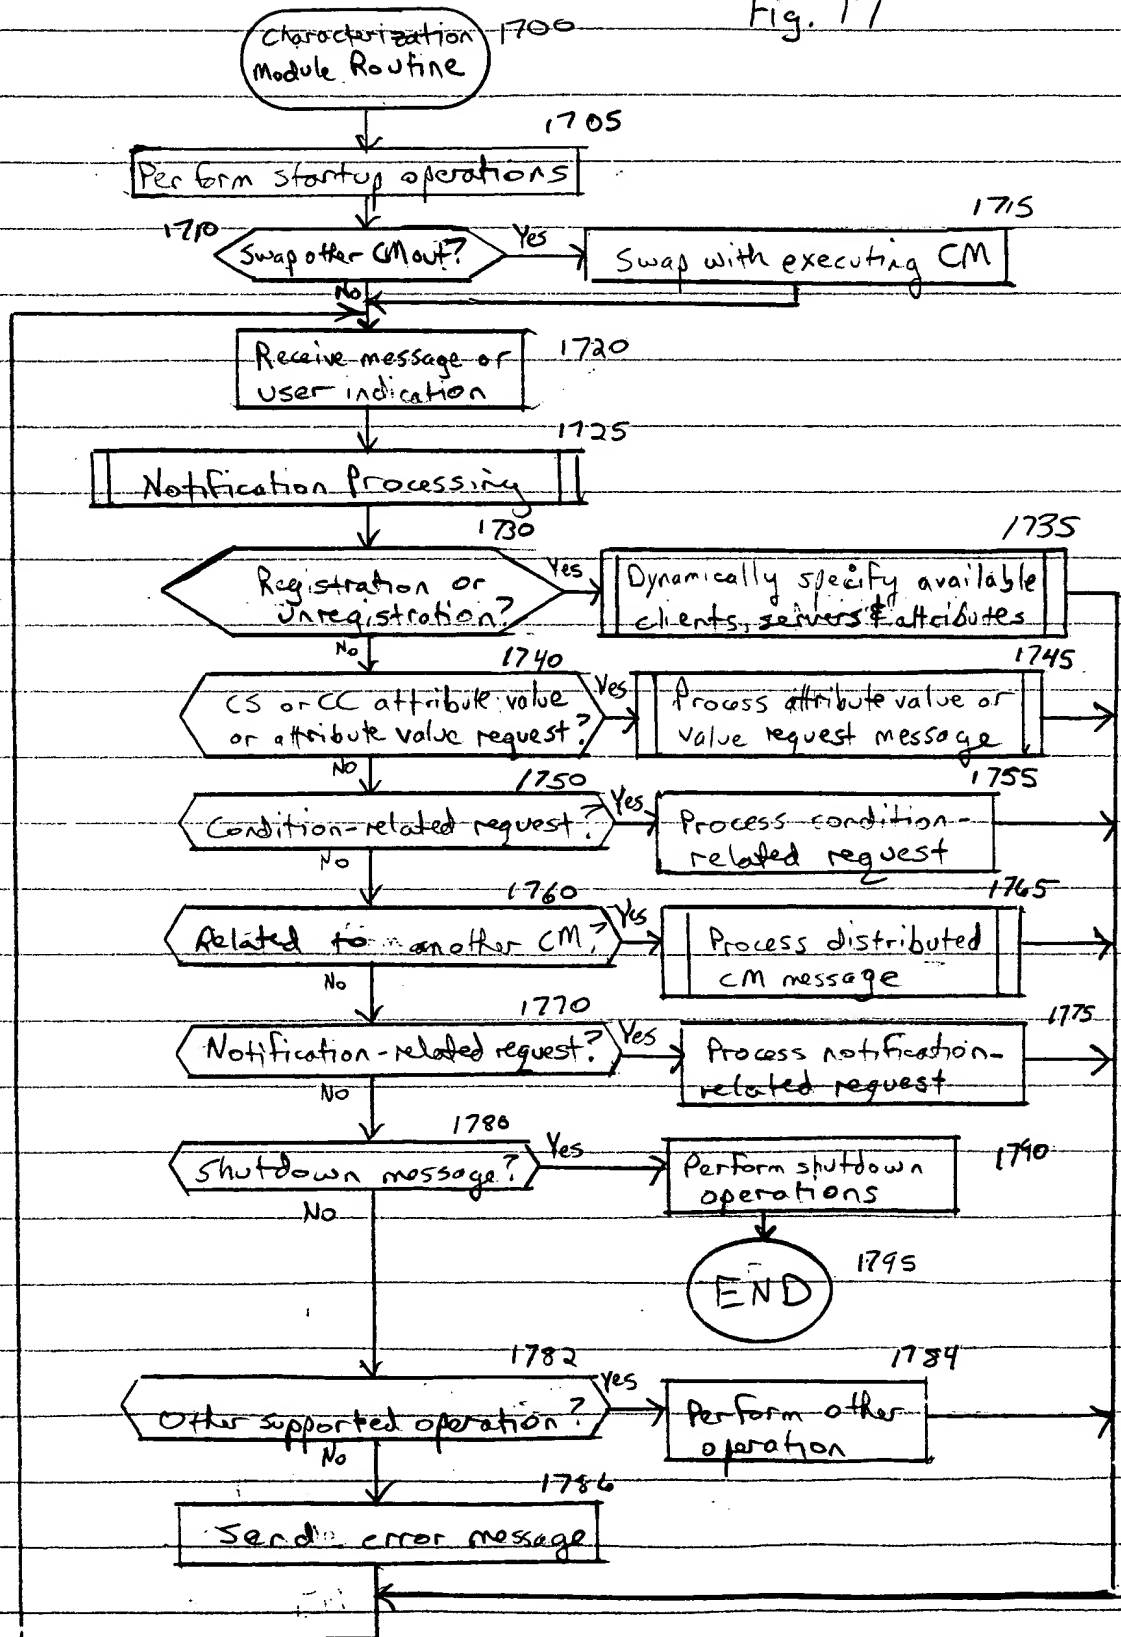 Fig. 17
Characterization
Module Routine
1700
1705
Perform startup operations
1710
Swap other CM out?
Yes
1715
Swap with executing CM
No
Receive message or
user indication
1720
1725
Notification Processing
1730
Registration or
Unregistration?
Yes
1735
Dynamically specify available
clients, servers & attributes
No
1740
CS or CC attribute value
or attribute value request?
Yes
1745
Process attribute value or
value request message
No
1750
Condition-related request?
Yes
1755
Process condition-
related request
No
1760
Related to another CM?
Yes
1765
Process distributed
CM message
No
1770
Notification-related request?
Yes
1775
Process notification-
related request
No
1780
Shutdown message?
Yes
Perform shutdown
operations
1790
No
END
1795
1782
Other supported operation?
Yes
1784
Perform other
operation
No
1786
Send error message